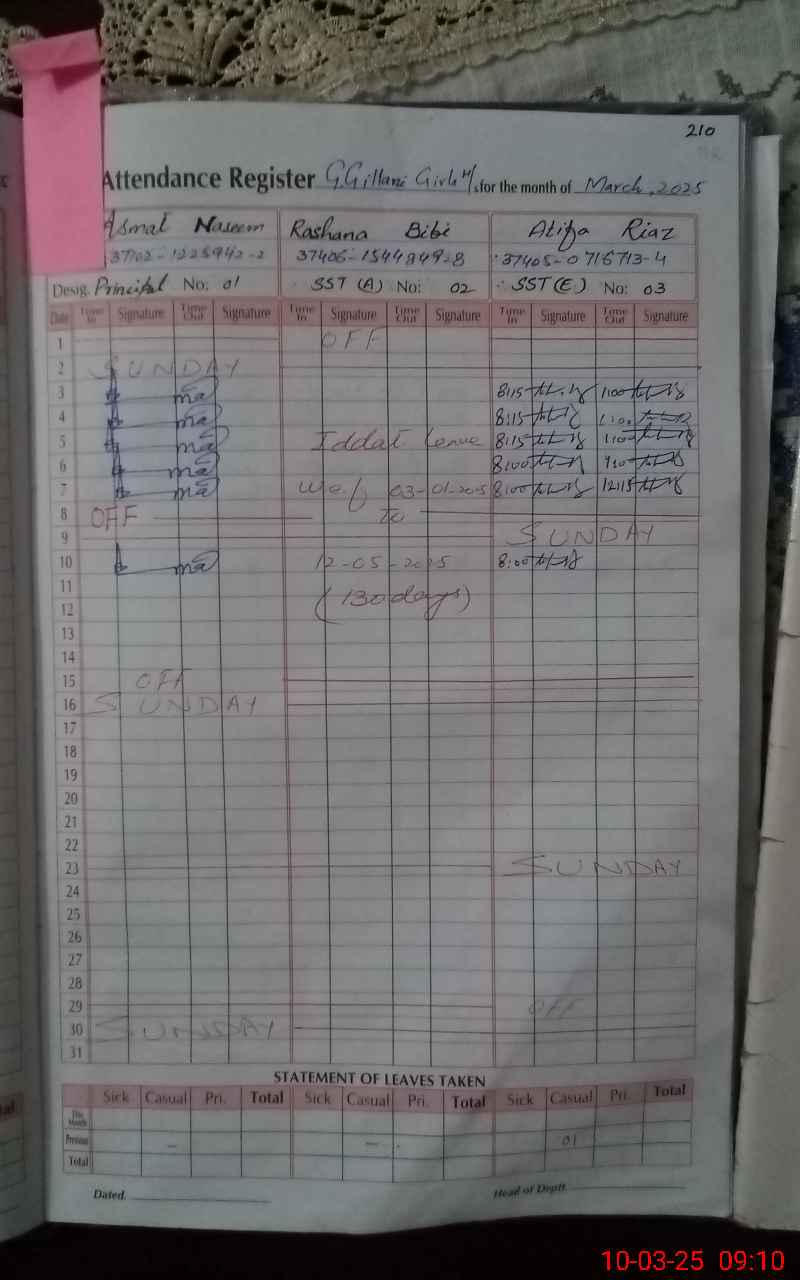 210
Attendance Register G.Gillani Girls H/s for the month of March, 2025
Asmat Naseem Rashana Bibi Atifa Riaz
37406-1544849-8 37405-0716713-4
Desig. Principal No: 01 SST (A) No: 02 SST (E) No: 03
Date Time In Signature Time Out Signature Time In Signature Time Out Signature Time In Signature Time Out Signature
1 OFF
2 SUNDAY
3 8:15 1:00
4 8:15
5 Iddat Leave 8:15 1:00
6 8:00
7 w.e.f 03-01-2025 8:00 12:15
8 OFF To
9 SUNDAY
10 12-05-2025 8:00
11
12 (130 days)
13
14
15 OFF
16 SUNDAY
17
18
19
20
21
22
23 SUNDAY
24
25
26
27
28
29 OFF
30 SUNDAY
31
STATEMENT OF LEAVES TAKEN
Sick Casual Pri. Total Sick Casual Pri. Total Sick Casual Pri. Total
This Month
Previous – – 01
Total
Dated. Head of Deptt.
10-03-25 09:10